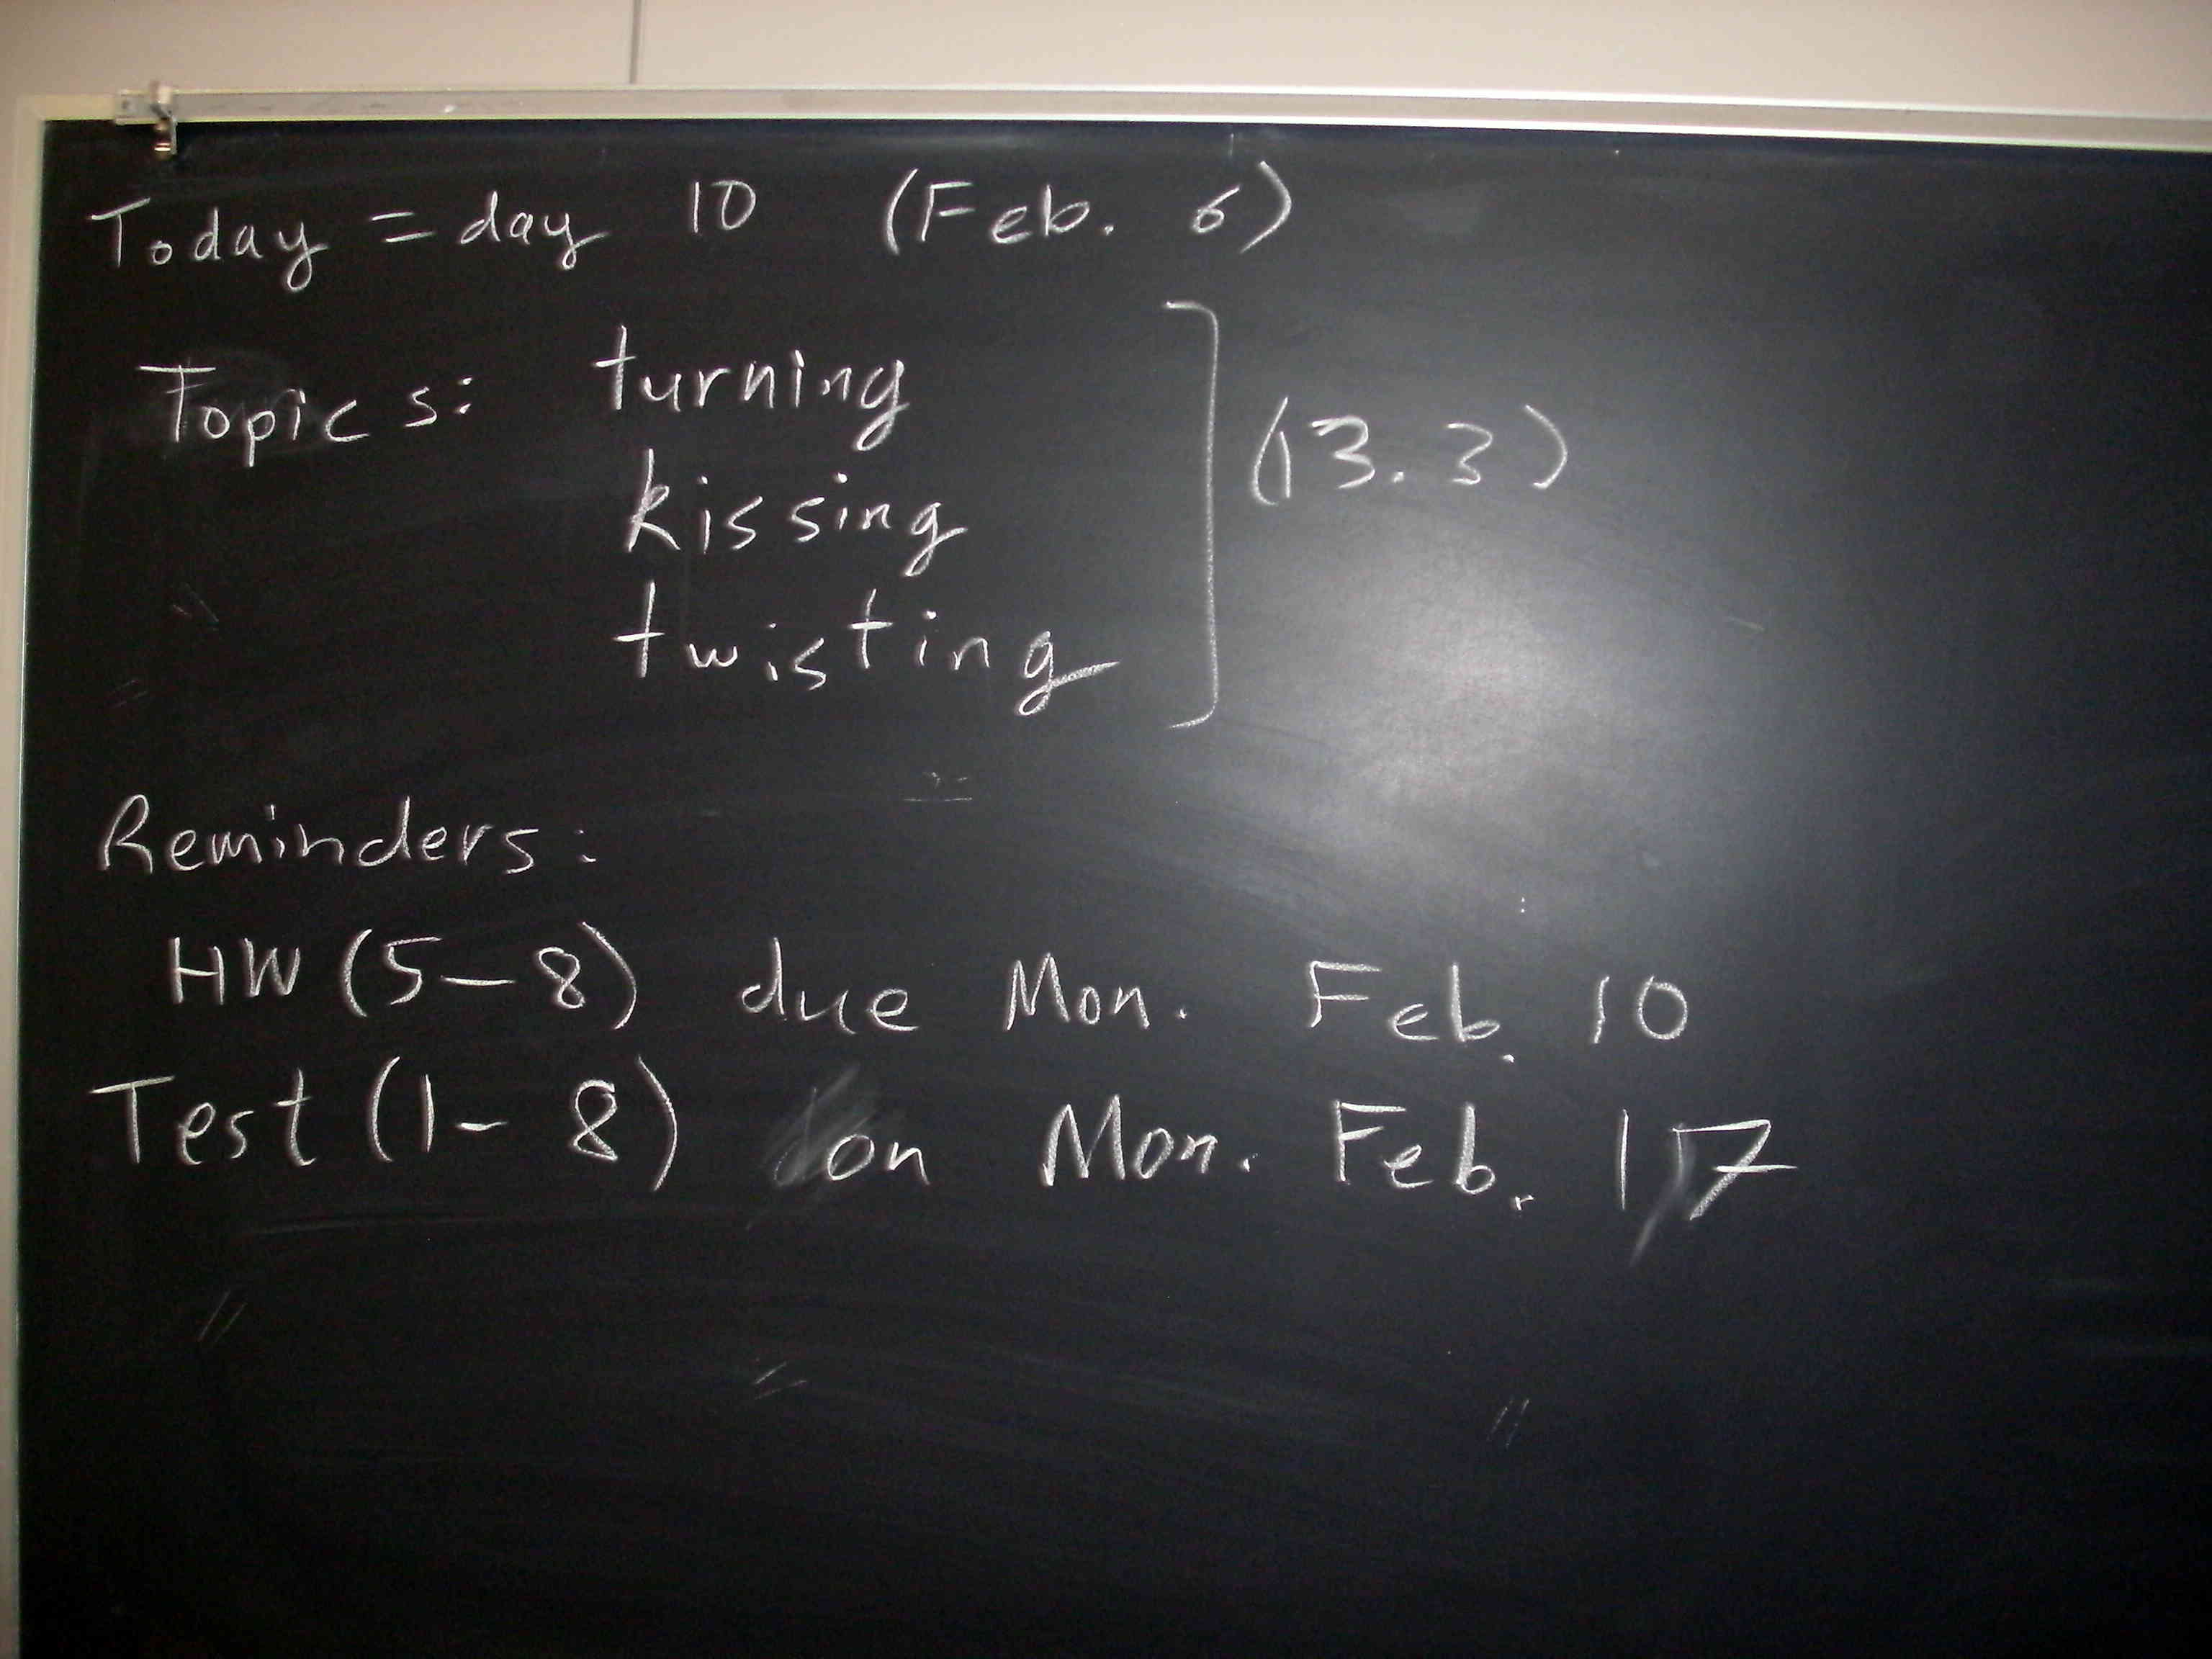 Today = day 10 (Feb. 6)
Topics: turning
kissing
twisting
(13.3)
Reminders:
HW (5-8) due Mon. Feb. 10
Test (1-8) on Mon. Feb. 17